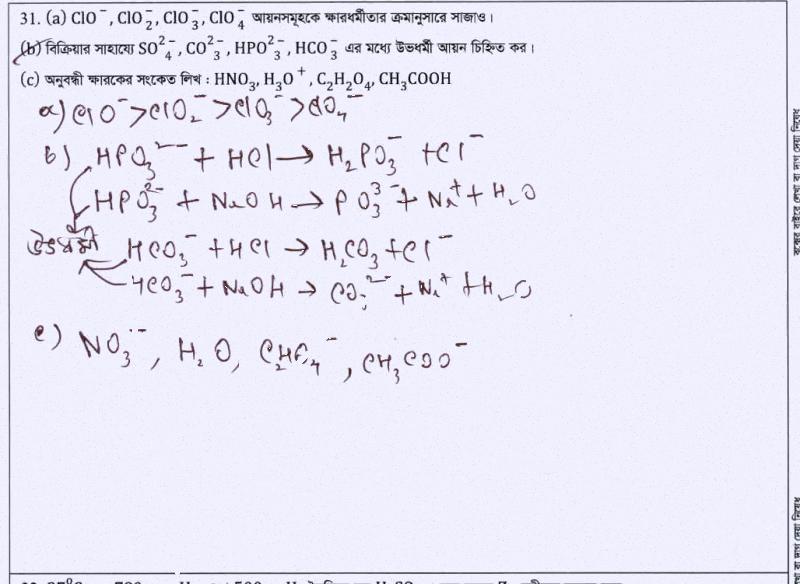 31. (a) ClO⁻, ClO₂⁻, ClO₃⁻, ClO₄⁻ আয়নসমূহকে ক্ষারধর্মীতার ক্রমানুসারে সাজাও।
(b) বিক্রিয়ার সাহায্যে SO₄²⁻, CO₃²⁻, HPO₃²⁻, HCO₃⁻ এর মধ্যে উভধর্মী আয়ন চিহ্নিত কর।
(c) অনুবন্ধী ক্ষারকের সংকেত লিখ : HNO₃, H₃O⁺, C₂H₂O₄, CH₃COOH
a) ClO⁻ > ClO₂⁻ > ClO₃⁻ > ClO₄⁻
b) HPO₃²⁻ + HCl → H₂PO₃⁻ + Cl⁻
HPO₃²⁻ + NaOH → PO₃³⁻ + Na⁺ + H₂O
উভধর্মী HCO₃⁻ + HCl → H₂CO₃ + Cl⁻
HCO₃⁻ + NaOH → CO₃²⁻ + Na⁺ + H₂O
c) NO₃⁻, H₂O, C₂HO₄⁻, CH₃COO⁻